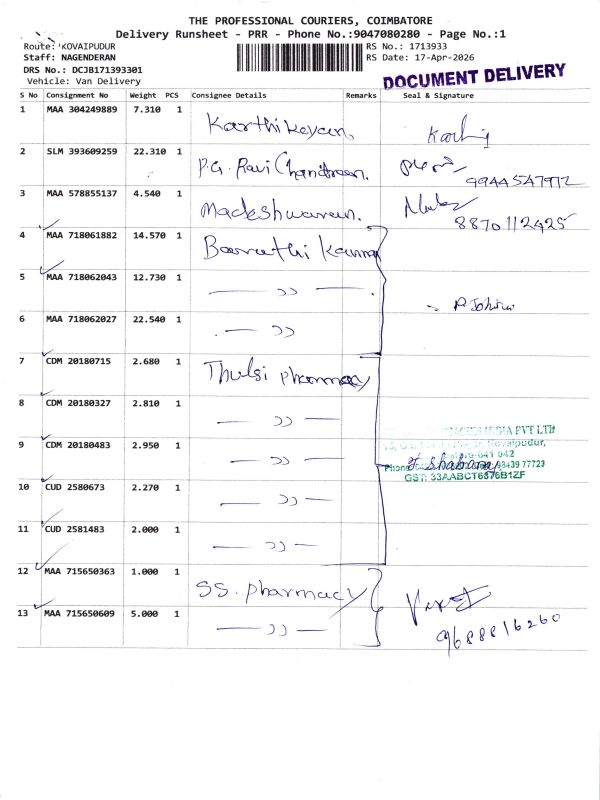 THE PROFESSIONAL COURIERS, COIMBATORE
Delivery Runsheet - PRR - Phone No.:9047080280 - Page No.:1
Route: KOVAIPUDUR
RS No.: 1713933
Staff: NAGENDERAN
RS Date: 17-Apr-2026
DRS No.: DCJB171393301
Vehicle: Van Delivery
DOCUMENT DELIVERY
S No Consignment No Weight PCS Consignee Details Remarks Seal & Signature
1 MAA 304249889 7.310 1 Karthikeyan
2 SLM 393609259 22.310 1 P.G. Ravi Chandran.
9944547972
3 MAA 578855137 4.540 1 Madeshwaran.
8870112425
4 MAA 718061882 14.570 1 Barathi
5 MAA 718062043 12.730 1 — " —
6 MAA 718062027 22.540 1 — " —
7 CDM 20180715 2.680 1 Thulsi pharmacy
8 CDM 20180327 2.810 1 — " —
9 CDM 20180483 2.950 1 — " —
INDIA PVT LTD
Kovaipudur,
641 042
Phone 93439 77723
GST: 33AABCT6376B1ZF
10 CUD 2580673 2.270 1 — " —
11 CUD 2581483 2.000 1 — " —
12 MAA 715650363 1.000 1 SS. pharmacy
13 MAA 715650609 5.000 1 — " —
9688816260